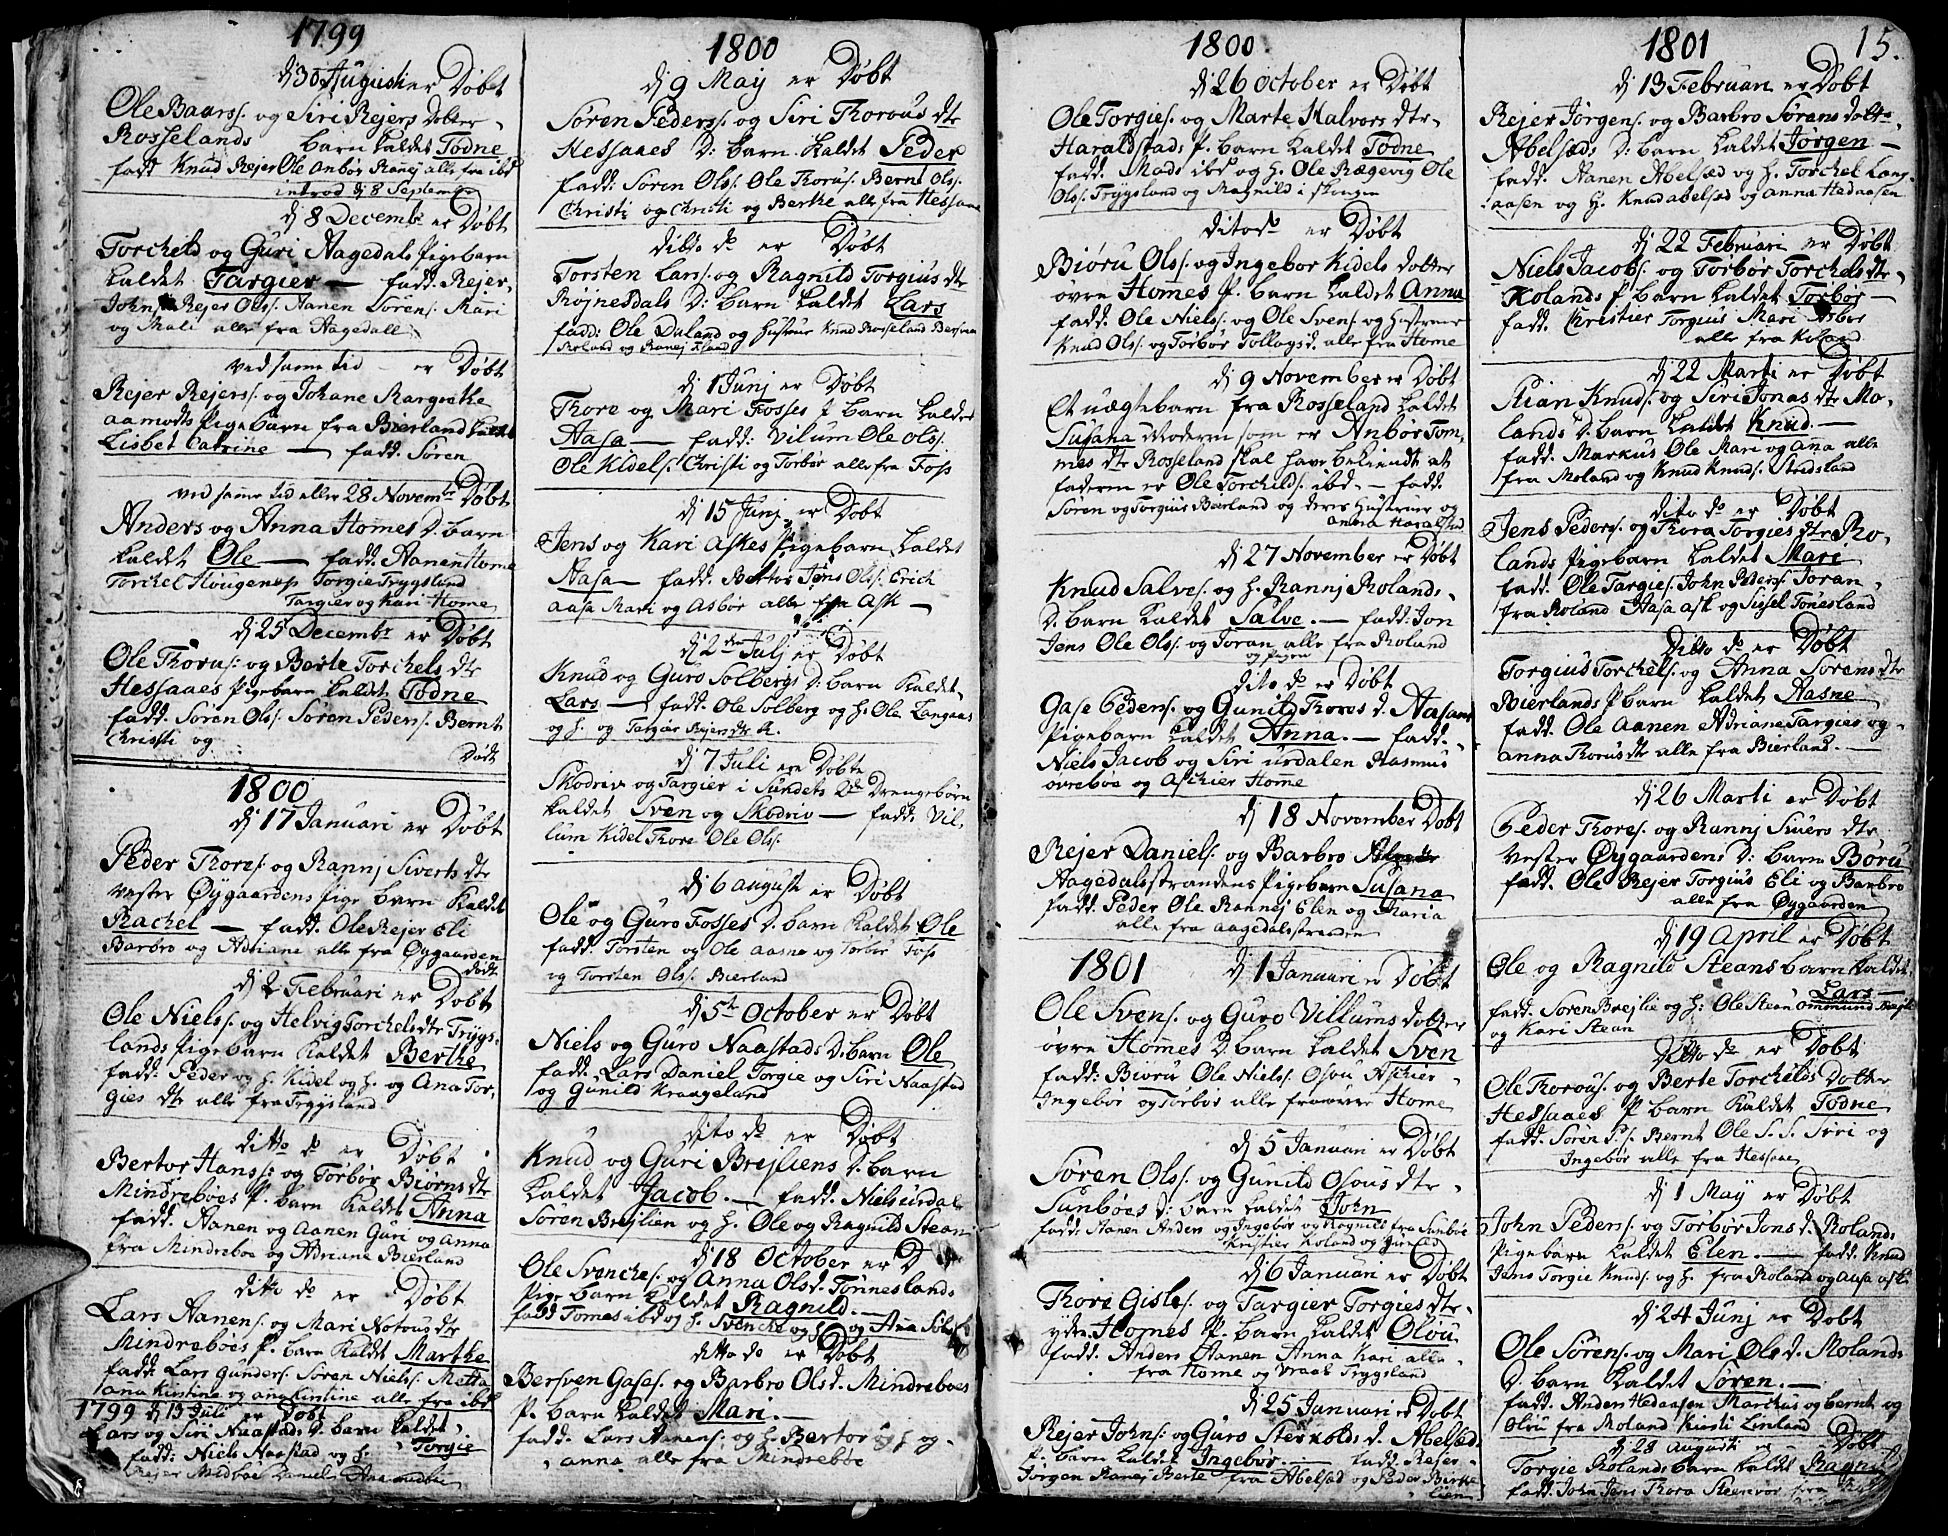 1799
dj 30 Augusti er Døbt
Ole Baars: og Siri Rejers Dotter
Rosselands barn kaldet Todne
fadd Knud Rejer Ole Anbør Ranej alle fra ibd
introd dj 8 September
dj 8 Decembr er Døbt
Torchild og Guri Aagedals Pigebarn
kaldet Targier — fadd. Rejer
Johns: Rejer Ols: Aanen Sören: Mari
og Mali alle fra Aagedall
ved samme tid er Døbt
Rejer Rejers: og Johane Margrethe
aamodts Pigebarn fra Bierland kaldet
Lisbet Catrine — fadd. Sören
ved samme tid eller 28 Novembr Døbt
Anders og Anna Homes D: barn
kaldet Ole — fadd. Aanen Home
Torchel Hougenes Torgie Trygsland
Targier og Kari Home
dj 25 Decembr er Døbt
Ole Thorus: og Berte Torchels dtr
Hessaaes Pigebarn kaldet Todne
fadd. Sören Ols: Sören Peders: Bernt
Christi og
Dødt
1800
dj 17 Januari er Døbt
Peder Thores: og Rannj Siverts dtr
Vester Øygaardens pige barn kaldet
Rachel — fadd. Ole Rejer Eli
Barbro og Adriane alle fra Øygaarden
dødt.
dj 2 Februari er Døbt
Ole Niels: og Helvig Torchels dtr Trygs-
lands Pigebarn kaldet Berthe
fadd. Peder og h. Kidel og h. og Ana Tor-
gies dtr alle fra Trygsland
ditto do er Døbt
Bertor Hans: og Torbor Biørns dtr
Mindreboes P. barn kaldet Anna
fadd. Aanen og Aanen Guri og Anna
fra Mindreboe og Adriane Bierland
ditto do er Døbt
Lars Aanens: og Mari Notous dtr
Mindreboes P. barn kaldet Marthe
fadd. Lars Gunders: Sören Niels: Metta
ana Kirstine og ana Kirstine alle fra ibd
1799 dj 13 Juli er Døbt
Lars og Siri Naastads D. barn kaldet
Torgie
fadd: Niels Naastad og h
Rejer Medboe Daniel
1800
dj 9 May er Døbt
Sören Peders: og Siri Thorous dtr
Hessaaes D: barn kaldet Peder
fadd: Sören Ols: Ole Thorus: Bernt Ols:
Christi og Christi og Berthe alle fra Hessaae
ditto do er Døbt
Torsten Lars: og Ragnild Torgius dtr
Røjnesdals D: barn kaldet Lars
fadd: Ole Daland og Hustrue Knud Rosseland Bersven
Roland og Ranej Flaad
dj 1 Junj er Døbt
Thore og Mari Fosses P barn kaldet
Aasa — fadd: Vilum Ole Ols:
Ole Kidels: Christi og Torbor alle fra Foss
dj 15 Junj er Døbt
Jens og Kari Askes Pigebarn kaldet
Aasa — fadd. Bertor Jens Ols: Erich
aasa Mari og Asbør alle fra Ask —
dj 2den Julj er Døbt
Knud og Guro Solbergs D: barn kaldet
Lars — fadd. Ole Solberg og h. Ole Langaas
og h. og Targier Rejers dtr R.
dj 7 Juli ere Døbte
Skodriv og Targier i Sundets 2de Drengebørn
kaldet Sven og Skodriv — fadd. Vil-
lum Kidel Thore Ole Ols:
dj 6 august er Døbt
Ole og Guro Fosses D. barn kaldet Ole
fadd. Torsten og Ole Aasne og Torbor Foss
og Torsten Ols: Bierland
dj 5te October er Døbt
Niels og Guro Naastads D. barn Ole
fadd. Lars Daniel Torgie og Siri Naastad
og Gunild Kraageland
dito do er Døbt
Knud og Guri Brejliens D: barn
kaldet Jacob. — fadd. Niels urdal
Sören Brejlien og h. Ole og Ragnild Stean
dj 18 October er D
Ole Svenches: og Anna Ols d. Tønneslands
Pige barn kaldet Ragnild. —
fadd Tomes ibd og h. Svenche og h. og Ana
ditto do er Døbt
Bersven Gases: og Barbro Ols d. Mindreboes
P. barn kaldet Mari. —
fadd. Lars Aanens: og h. Bertor og h og
anna alle fra Mindreboe
1800
dj 26 October er Døbt
Ole Torgies: og Marte Halvors dtr
Haraldstads P. barn kaldet Todne
fadd. Mads ibd og h. Ole Rægevig Ole
Ols: Trygsland og Magnild i skougen
dito do er Døbt
Biøru Ols: og Ingebor Kidels dotter
øvre Homes P. barn kaldet Anna
fadd. Ole Niels: og Ole Svens: og Hustruer
Knud Ols: og Torbør Tollags d. alle fra Home
dj 9 November er Døbt
Et uægte barn fra Rosseland kaldet
Susana Moderen som er Anbør Tom-
mes dtr Rosseland skal have bekiendt at
faderen er Ole Torchilds: ibd. — fadd.
Sören og Torgius Bierland og deres Hustruer og
Anna Haralstad
dj 27 November er Døbt
Knud Salves: og h. Rannj Rolands
D. barn kaldet Salve. — fadd: Jon
Jens Ole Ols: og Joran alle fra Roland
og pigen
dito do er Døbt
Gase Peders: og Gunild Thoros d. Aasans
Pigebarn kaldet Anna. — fadd.
Niels Jacob og Siri urdalen Rasmus
øvrebøe og Aschier Home
dj 18 November Døbt
Rejer Daniels: og Barbro
Aagedalsstrandens Pigebarn Susana
fadd: Peder Ole Rannej Elen og Maria
alle fra aagedalsstranden
1801 dj 1 Januari er Døbt
Ole Svens: og Guro Villums dotter
øvre Homes D. barn kaldet Sven
fadd: Biøru Ole Niels: Osou Aschier
Ingebor og Torbor alle fra øvre Home
dj 5 Januari er Døbt
Søren Ols: og Gunild Osous dtr
Sunbøes D: barn kaldet John
fadd. Aanen Anders og Ingebor og Ragnild fra Sunbøe
Kristier Roland og Guri ibd
dj 6 Januari er Døbt
Thore Gisles: og Targier Torgies dtr
ydre Homes P. barn kaldet Olou
fadd. Anders Aanen Anna Kari alle
fra Home og Vraal Trygsland
dj 25 Januari er Døbt
Rejer Johns: og Guro Sterkolds d. Abelsæds
P. barn kaldet Ingebor. — fadd. Rejer
Jorgen Ranej Berte fra Abelsæd og Peder Birke
lien
1801 15.
dj 13 Februari er Døbt
Rejer Jörgens: og Barbro Sørans dotter
Abelsæds D: barn kaldet Jørgen —
fadd. Aanen Abelsæd og h. Torchel Lang-
aasen og h. Knud abelsæd og anna Hedaasen
dj 22 Februari er Døbt
Niels Jacobs: og Torbør Torchels dtr
Kolands P barn kaldet Torbør —
fadd. Christier Torgius Mari Asbør
alle fra Koland
dj 22 Marti er Døbt
Rian Knuds: og Siri Jonas dtr Mo-
lands D. barn kaldet Knud. —
fadd. Markus Ole Mari og Ana alle
fra Moland og Knud Knuds: Stedsland
dito do er Døbt
Jens Peders: og Thora Torgies dtr Ro-
lands Pigebarn kaldet Mari
fadd. Ole Targies: John Peders: Joran
fra Roland Aasa ask og Sissel Tønesland
Ditto do er Døbt
Torgius Torchels: og Anna Sørens dtr
Bierlands P barn kaldet Aasne
fadd. Ole Aanen Adriane Targier og
anna Thorus dtr alle fra Bierland. —
dj 26 Marti er Døbt
Peder Thores: og Rannj Siuero dtr
Vester Øygaardens D: barn Børu
fadd. Ole Rejer Torgius Eli og Barbro
alle fra Øygaarden
dj 19 April er Døbt
Ole og Ragnild Steans barn kaldet
Lars —
fadd. Søren Brejlie og h: Ole Stean Omund
og Kari Stean
Ditto do er Døbt
Ole Thorous: og Berte Torchilds Dotter
Hessaaes P barn kaldet Todne
fadd. Sören P.s: Bernt Ole S. S. Siri og
Ingebør alle fra Hessaae
dj 1 May er Døbt
John Peders: og Torbør Jons d. Rolands
Pigebarn kaldet Elen. — fadd. Knud
Jens Torgie Knuds: og h. fra Roland og aasa ask
dj 24 Junj er Døbt
Ole Sörens: og Mari Ols d. Molands
D. barn kaldet Søren. —
fadd. Anders Hedaasen Marchus og bernt og
Olou fra Moland Kirsti Linland
dj 28 Augusti er Døbt
Torgie Rolands barn kaldet Ragnild
fadd. John Jens Thora Steenvor fra